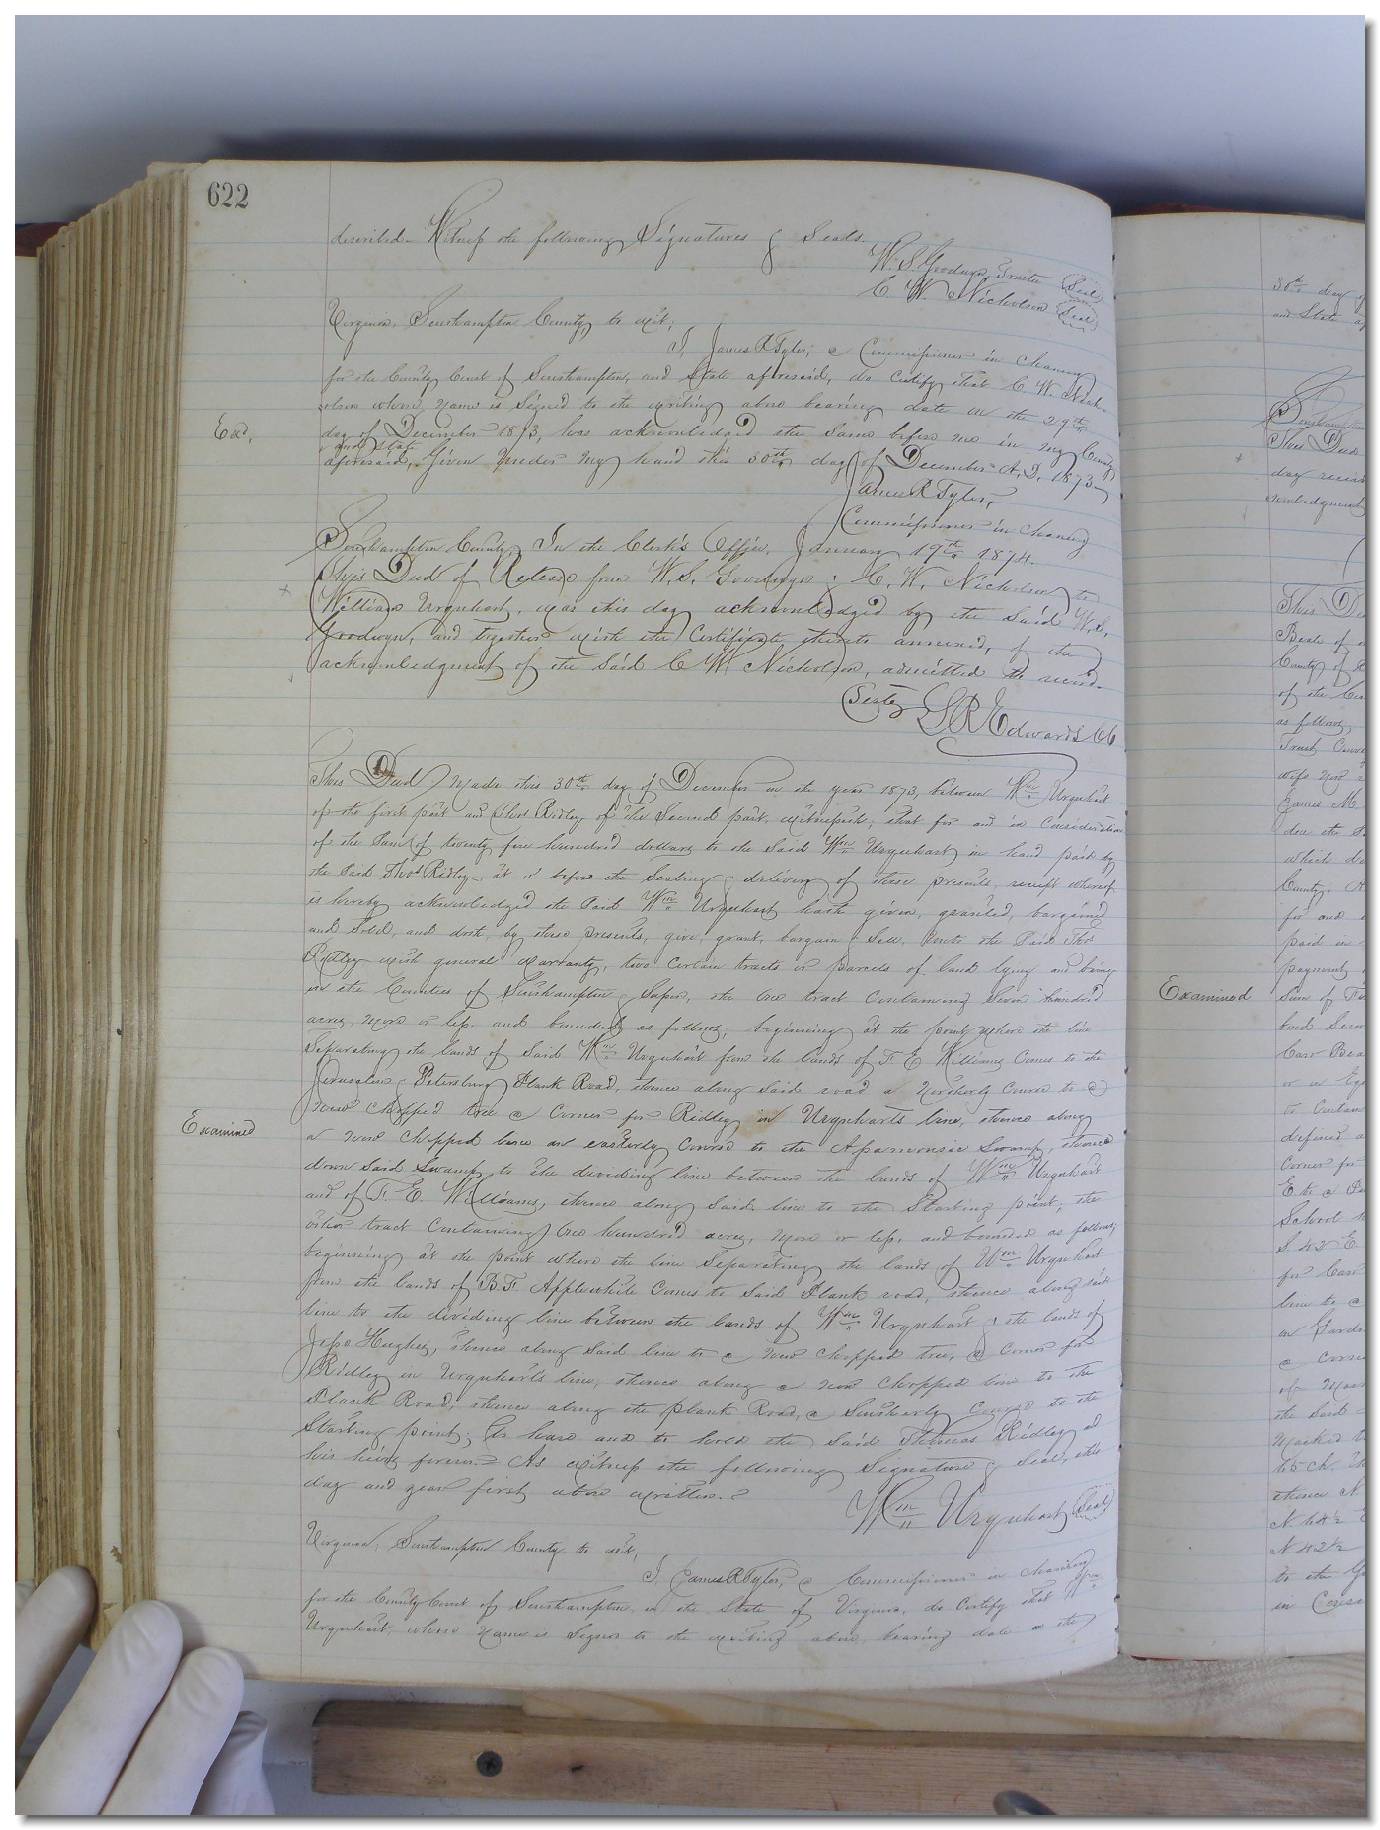 622
described. Witness the following Signatures & Seals.
W. S. Goodwyn, Trustee (Seal)
C. W. Nicholson (Seal)
Virginia, Southampton County, to wit;
I, James R Tyler, a Commissioner in Chancery
for the County Court of Southampton, and State aforesaid, do Certify that C. W. Nich-
olson whose name is Signed to the writing above bearing date on the 29th
Exd,
day of December 1873, has acknowledged the same before me in my County
and State
aforesaid. Given under my hand this 30th day of December A. D. 1873
James R Tyler,
Commissioner in Chancery
Southampton County, In the Clerk's Office, January 19th 1874.
This Deed of Release from W. S. Goodwyn & C. W. Nicholson to
William Urquhart, was this day acknowledged by the said W. S.
Goodwyn, and together with the Certificate thereto annexed, of the
acknowledgment of the said C W. Nicholson, admitted to record.
Teste, L R Edwards CC
This Deed Made this 30th day of December in the year 1873, between Wm Urquhart
of the first part and Thos Ridley of the Second part, witnesseth; that for and in Consideration
of the Sum of twenty five hundred dollars to the Said Wm Urquhart in hand paid by
the Said Thos Ridley, at or before the Sealing & delivery of these presents, receipt whereof
is hereby acknowledged the Said Wm Urquhart hath given, granted, bargained
and Sold, and doth, by these presents, give, grant, bargain & Sell, unto the Said Thos
Ridley with general warranty, two certain tracts or parcels of land lying and being
in the Counties of Southampton & Sussex, the one tract Containing Seven hundred
acres, more or less, and bounded as follows, beginning at the point where the line
Separating the lands of Said Wm Urquhart from the lands of T. E Williams Comes to the
Jerusalem & Petersburg Plank Road, thence along said road a Northerly Course to a
new chopped tree a Corner for Ridley in Urquharts line, thence along
Examined
a new chopped line an easterly Course to the Apamonsic Swamp, thence
down said Swamp to the dividing line between the lands of Wm Urquhart
and of T. E. Williams, thence along Said line to the Starting point; the
other tract Containing one hundred acres, more or less, and bounded as follows;
beginning at the point where the line Separating the lands of Wm Urquhart
from the lands of B. F. Applewhite Comes to Said Plank road, thence along said
line to the dividing line between the lands of Wm Urquhart & the lands of
Jesse Hughes, thence along Said line to a new chopped tree, a Corner for
Ridley in Urquhart's line, thence along a new Chopped line to the
Plank Road, thence along the plank Road, a Southerly Course to the
Starting point; To have and to hold the Said Thomas Ridley and
his heirs forever. As witness the following Signature & Seal, this
day and year first above written.
Wm Urquhart (Seal)
Virginia, Southampton County to wit,
I, James R Tyler, a Commissioner in Chancery
for the County Court of Southampton, in the State of Virginia, do Certify that Wm
Urquhart, whose name is Signed to the writing above, bearing date on the
30th day
and State
This Deed
day
This
Beale of
County of
of the
as follows,
Trust
wife
James M
which
County.
for and
paid in
payment
Examined
Sum of
or
defined a
Corner for
School
S. 42 E
for
line to a
a
of
the Said
thence N
N 42½
to the
in